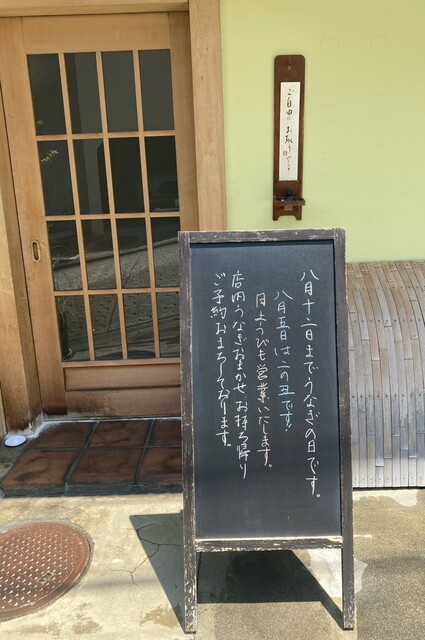 ご自由にお取り下さい
八月十二日まで、うなぎの日です。
八月五日は二の丑です！
月ようびも営業いたします。
店内うなぎおまかせ、お持ち帰り
ご予約おまちしております。